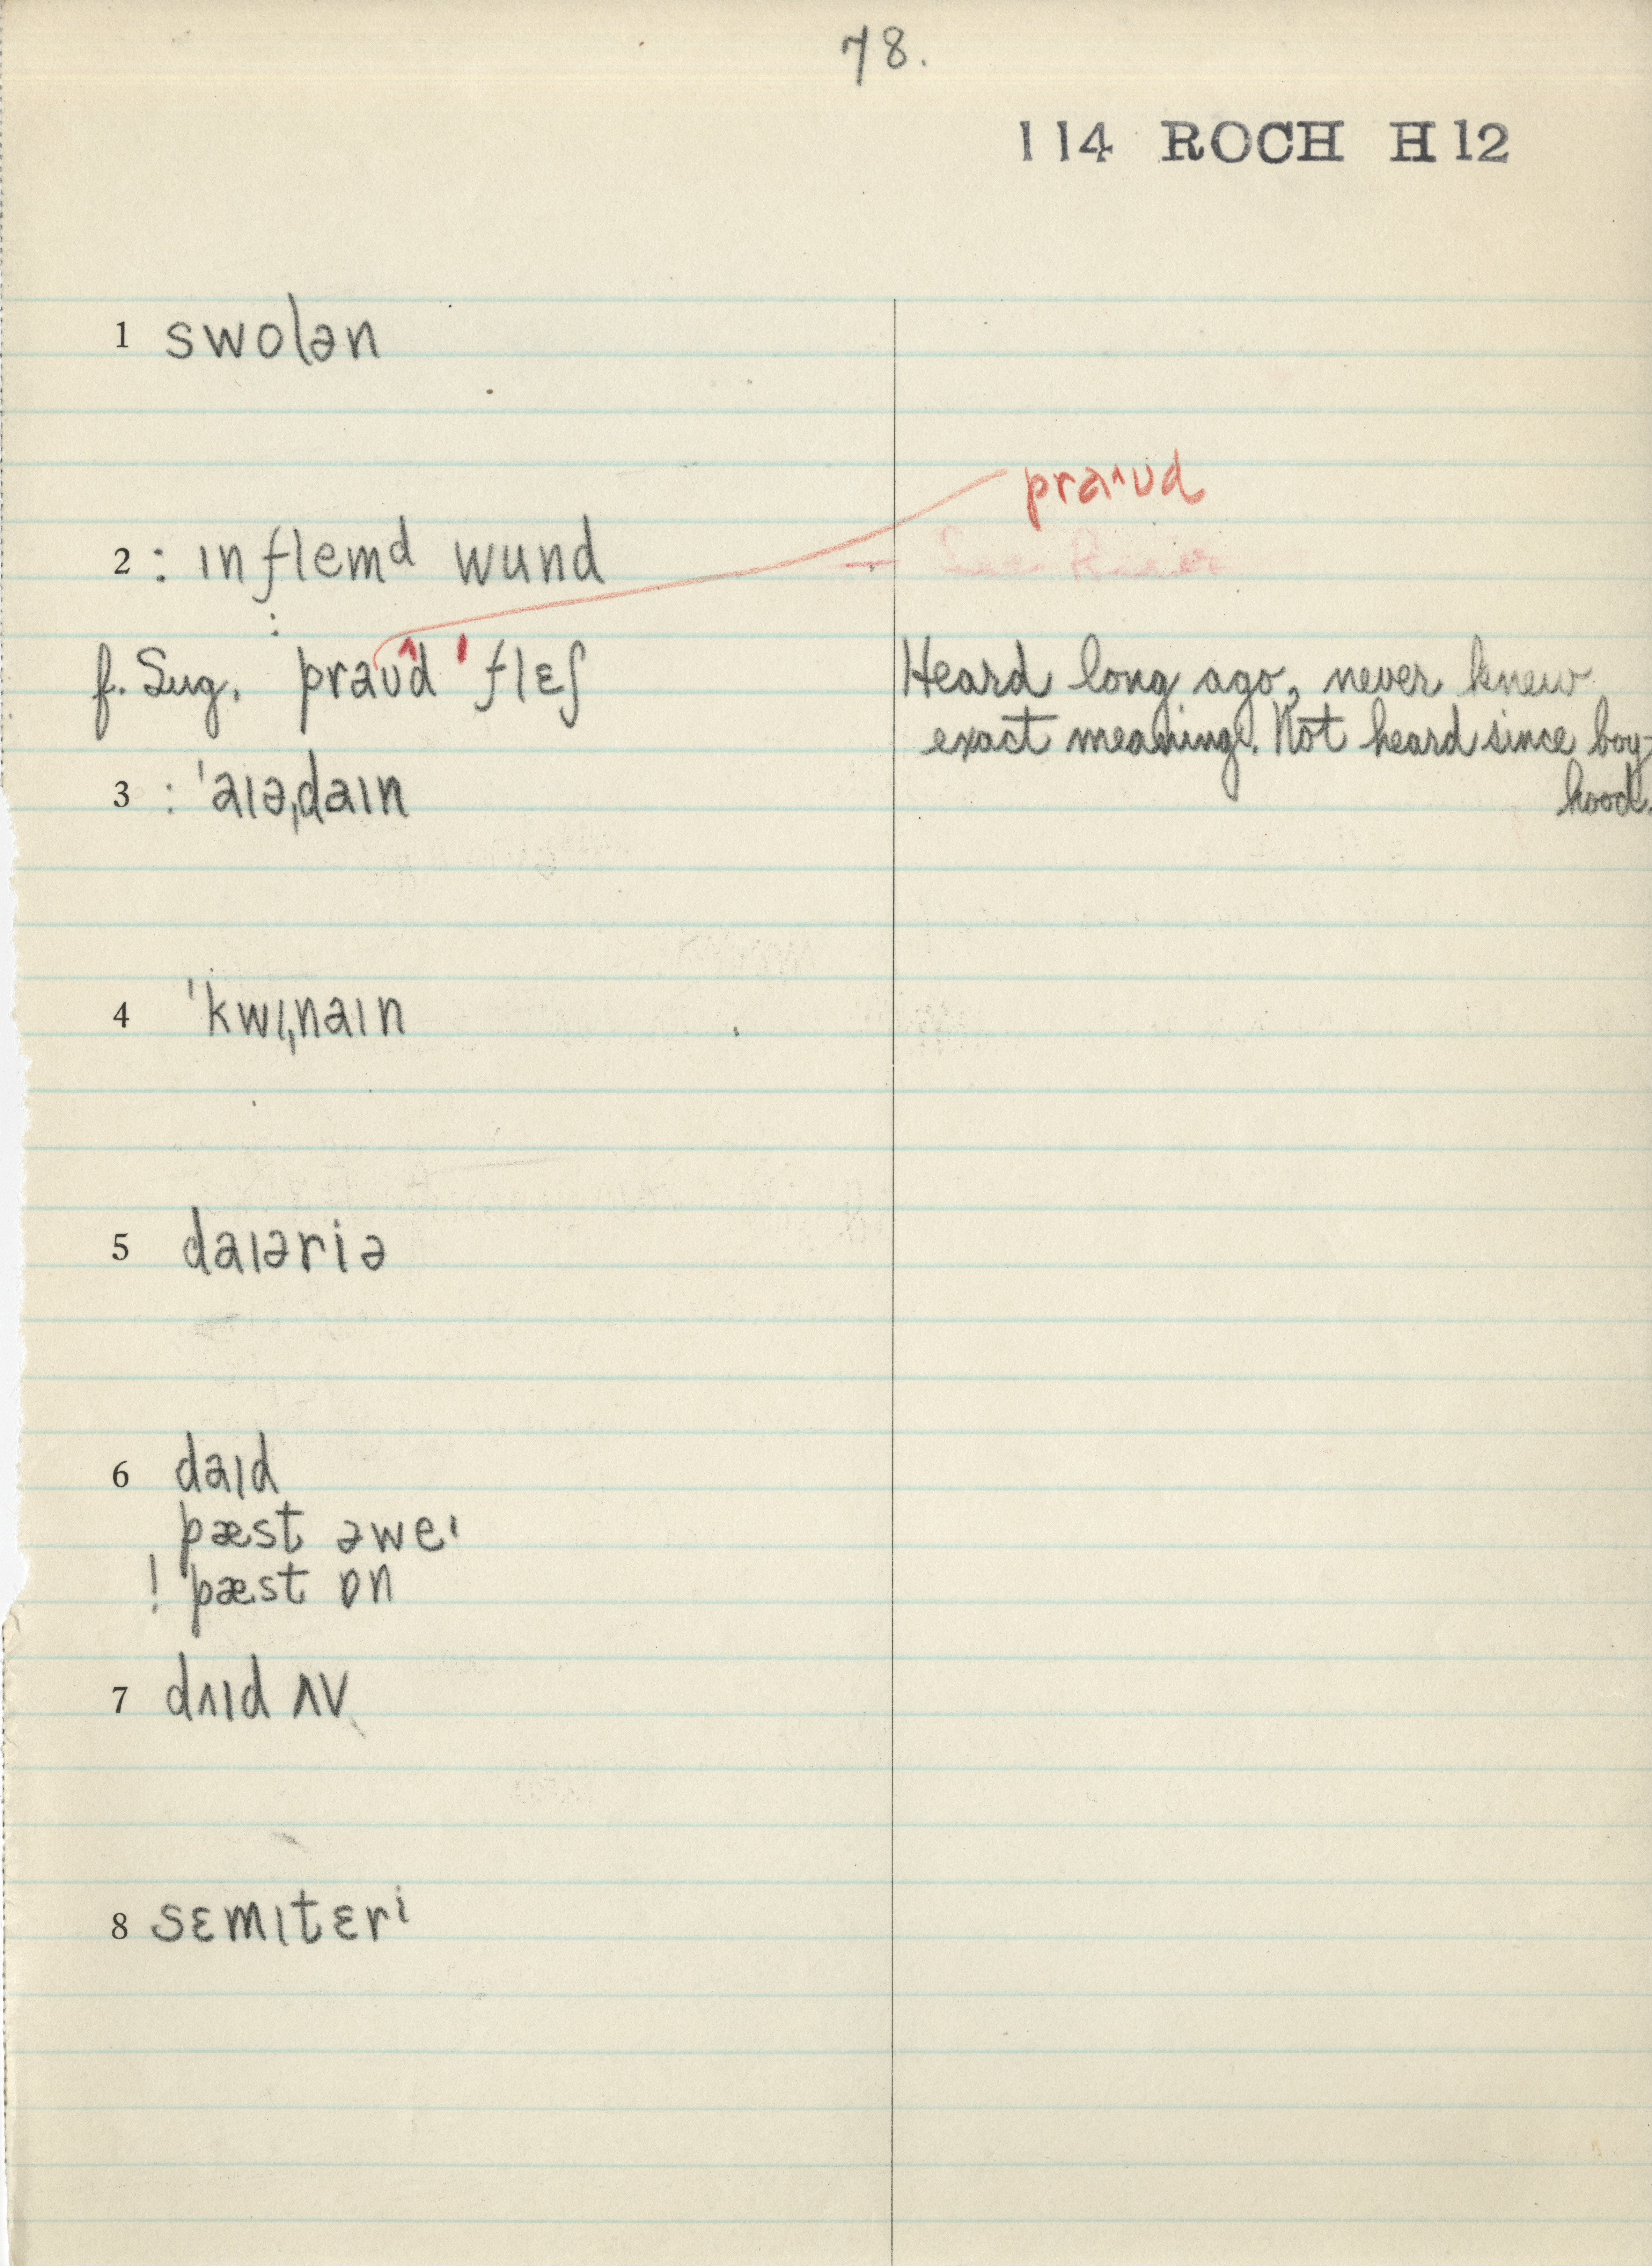 78.
114 ROCH H12
1 swolən
praˆʊd
2 : ɪnflemᵈ wund
:
f. Sug. praʊˆd ˈflɛʃ
Heard long ago, never knew
exact meaning. Not heard since boy-
hood.
3 : ˈaɪəˌdaɪn
4 ˈkwɪˌnaɪn
5 daɪəriə
6 daɪd
pæst əweᶦ
! pæst ɒn
7 dʌɪd ʌv
8 sɛmɪtɛrⁱ